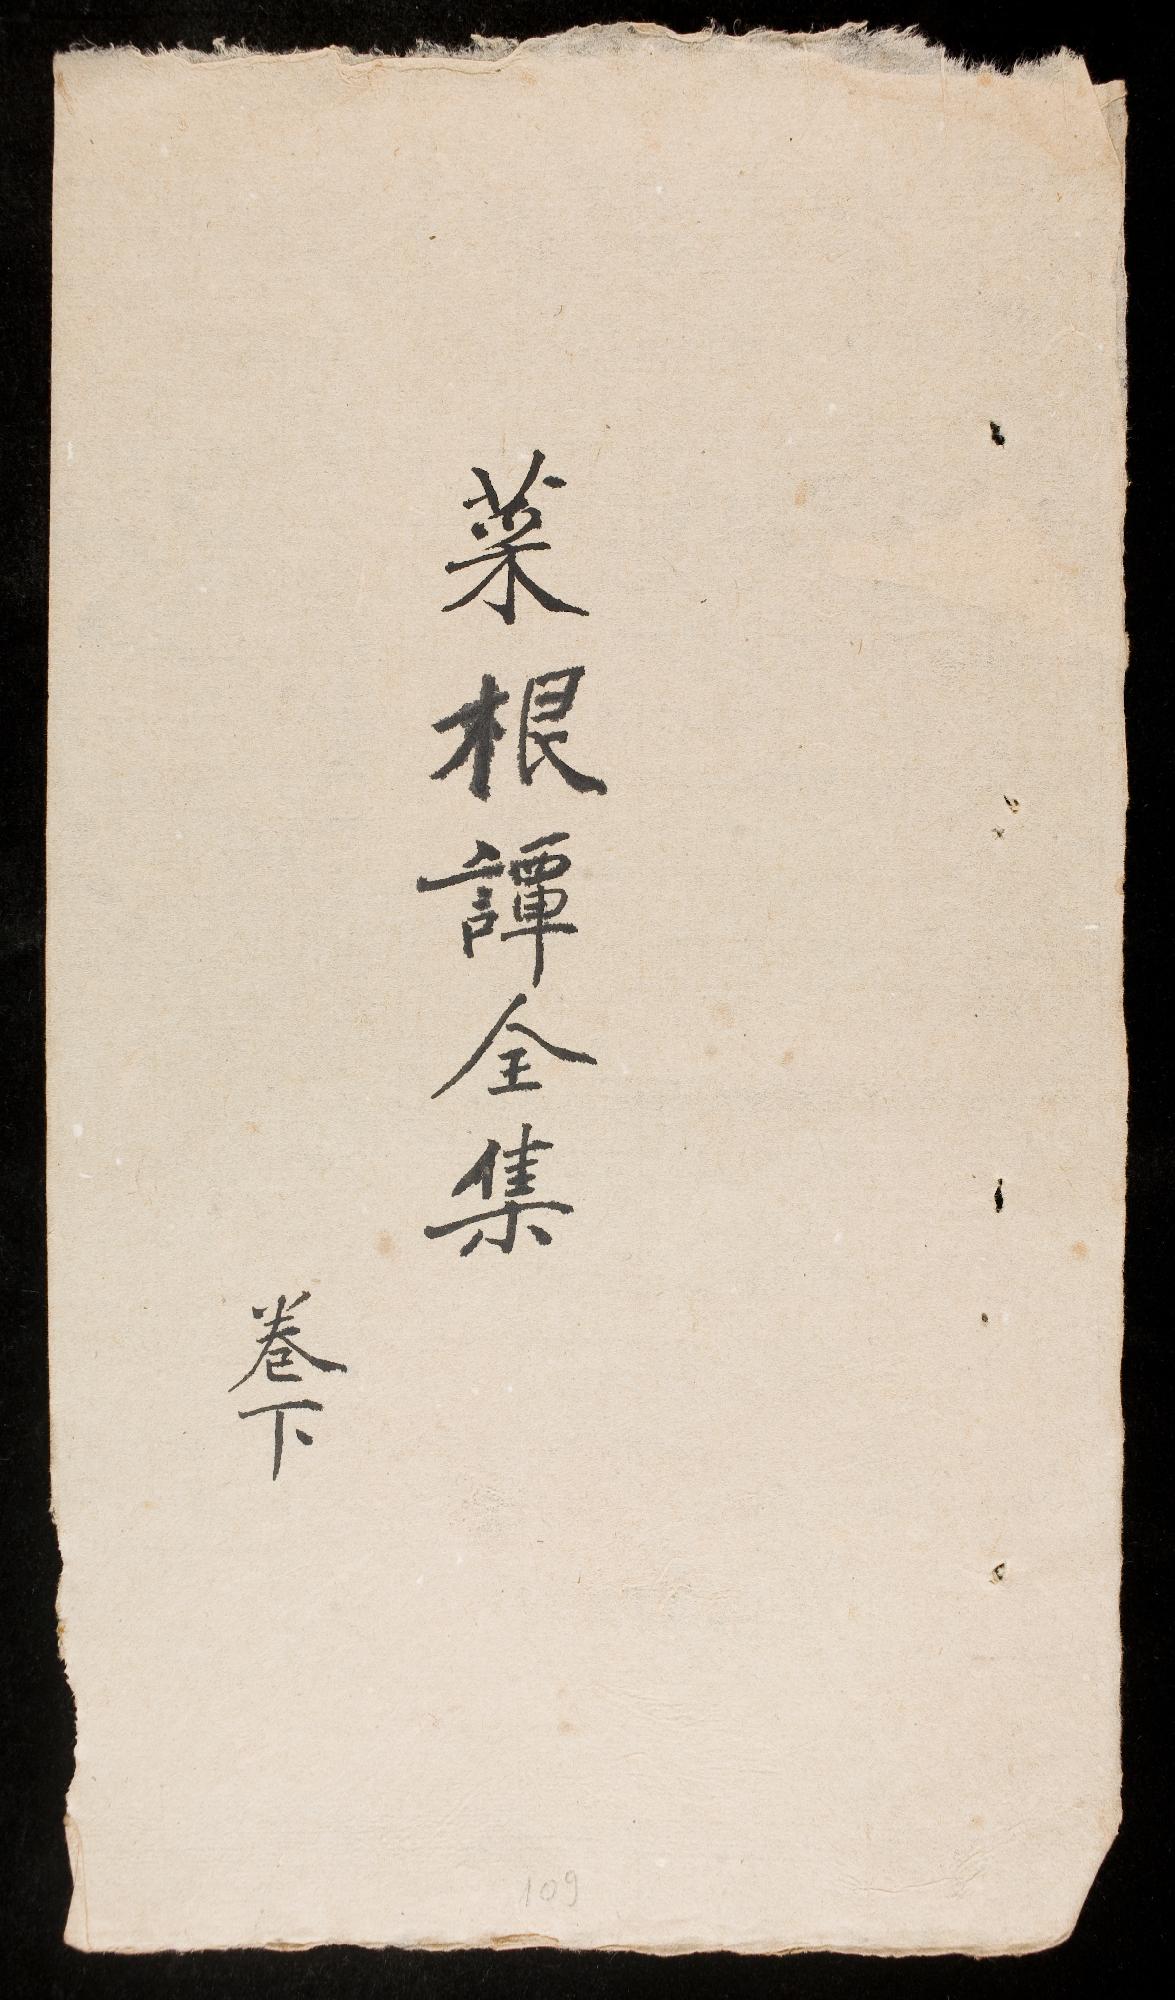 菜根譚全集
卷下
109